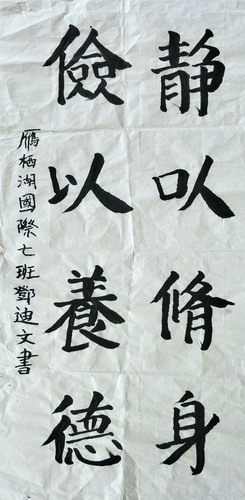 静以脩身
儉以養德
鴈栖湖國際七班鄧迪文書